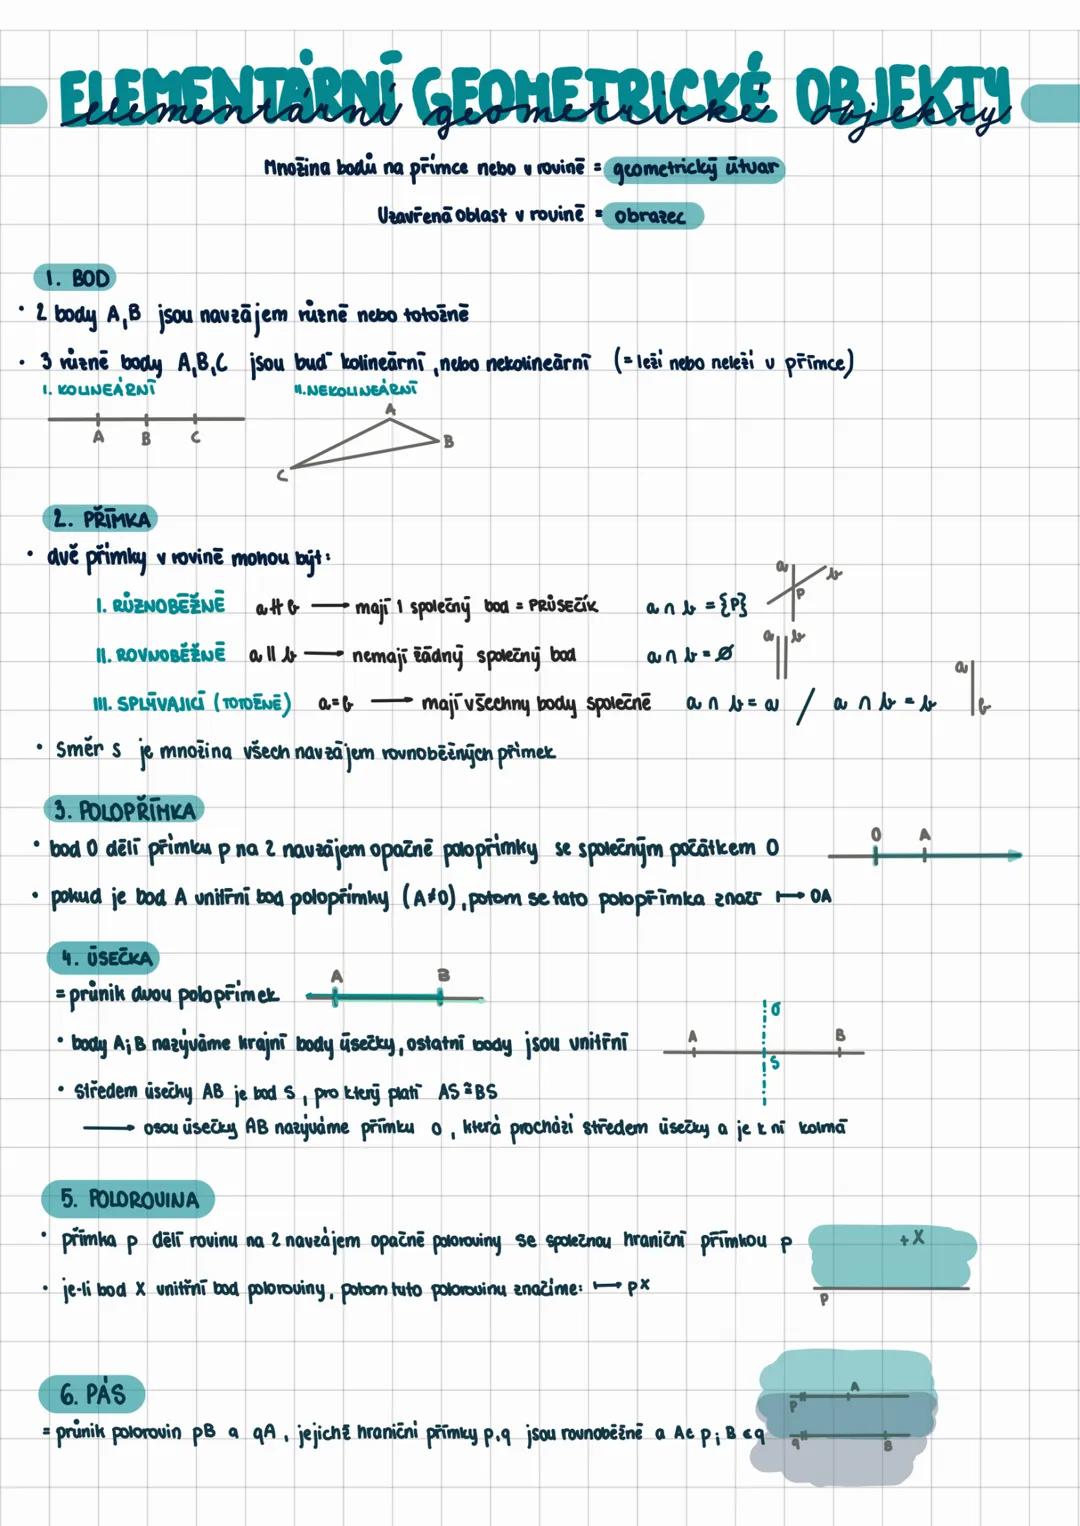 ELEMENTÁRNÍ GEOMETRICKÉ OBJEKTY
elementární geometrické objekty
Množina bodů na přímce nebo v rovině = geometrický útvar
Uzavřená oblast v rovině = obrazec
1. BOD
• 2 body A,B jsou navzájem různé nebo totožné
• 3 různé body A,B,C jsou buď kolineární, nebo nekolineární (= leží nebo neleží v přímce)
I. KOLINEÁRNÍ II. NEKOLINEÁRNÍ
A B C
A
B
C
2. PŘÍMKA
• dvě přímky v rovině mohou být:
I. RŮZNOBĚŽNÉ a ∦ b → mají 1 společný bod = PRŮSEČÍK a ∩ b = {P}
a b P
II. ROVNOBĚŽNÉ a || b → nemají žádný společný bod a ∩ b = ∅
a b
III. SPLÝVAJÍCÍ (TOTOŽNÉ) a=b → mají všechny body společné a ∩ b = a / a ∩ b = b
a b
• Směr s je množina všech navzájem rovnoběžných přímek
3. POLOPŘÍMKA
• bod O dělí přímku p na 2 navzájem opačné polopřímky se společným počátkem O
O A
• pokud je bod A vnitřní bod polopřímky (A≠O), potom se tato polopřímka značí ↦ OA
4. ÚSEČKA
= průnik dvou polopřímek
A B
• body A; B nazýváme krajní body úsečky, ostatní body jsou vnitřní
A o B
S
• Středem úsečky AB je bod S, pro který platí AS ≅ BS
→ osou úsečky AB nazýváme přímku o, která prochází středem úsečky a je k ní kolmá
5. POLOROVINA
• přímka p dělí rovinu na 2 navzájem opačné poloroviny se společnou hraniční přímkou p
+ X
p
• je-li bod X vnitřní bod poloroviny, potom tuto polorovinu značíme: ↦ pX
6. PÁS
= průnik polorovin pB a qA, jejichž hraniční přímky p,q jsou rovnoběžné a A ∈ p; B ∈ q
p A
q B